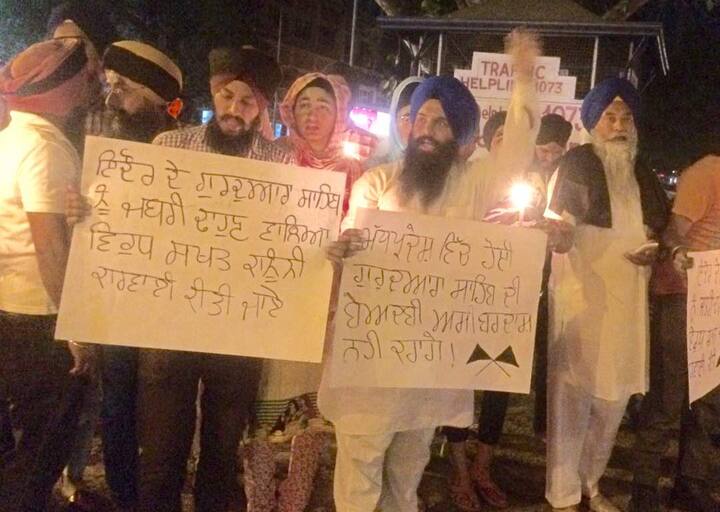 TRAFFIC
HELPLINE 1073
1073
ਇੰਦੌਰ ਦੇ ਗੁਰਦੁਆਰ ਸਾਹਿਬ
ਨੂੰ ਜਬਰੀ ਢਾਹੁਣ ਵਾਲਿਆਂ
ਵਿਰੁਧ ਸਖਤ ਕਾਨੂੰਨੀ
ਕਾਰਵਾਈ ਕੀਤੀ ਜਾਏ
ਮੱਧਪ੍ਰਦੇਸ਼ ਵਿੱਚ ਹੋਈ
ਗੁਰਦੁਆਰ ਸਾਹਿਬ ਦੀ
ਬੇਅਦਬੀ ਅਸੀਂ ਬਰਦਾਸ਼
ਨਹੀ ਕਰਾਂਗੇ !